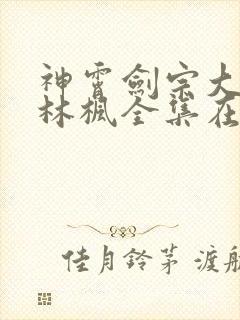 神霄劍宗大
林楓全集在
佳月鈴茅 渡航